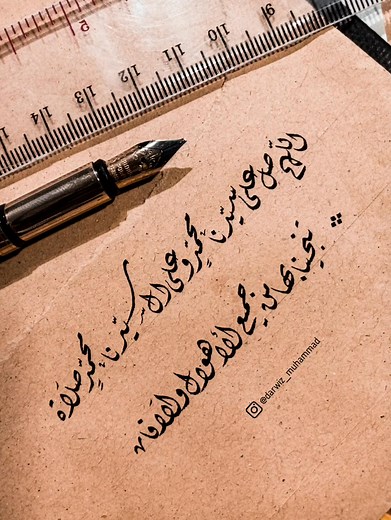 اللهم صل على سيدنا محمد وعلى ال سيدنا محمد صلاة
تنجينا بها من جميع الأهوال والآفات
@darwiz_muhammad
8 9 10 11 12
5